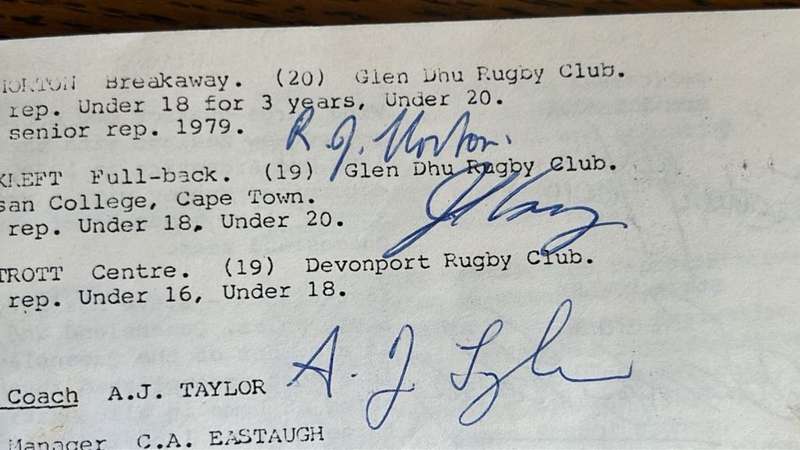 HORTON Breakaway. (20) Glen Dhu Rugby Club.
rep. Under 18 for 3 years, Under 20.
senior rep. 1979.
R. J. Horton.
KLEFT Full-back. (19) Glen Dhu Rugby Club.
san College, Cape Town.
rep. Under 18, Under 20.
TROTT Centre. (19) Devonport Rugby Club.
rep. Under 16, Under 18.
Coach A.J. TAYLOR A. J. Taylor
Manager C.A. EASTAUGH